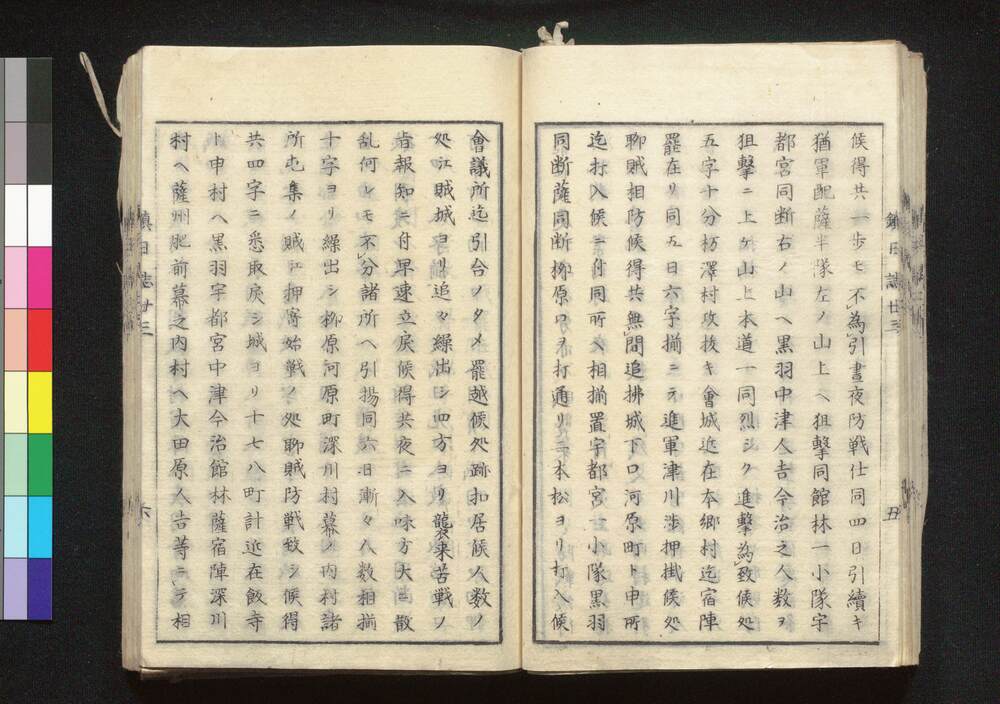 候得共一歩モ不為引晝夜防戦仕同四日引續キ
猶軍配薩半隊左ノ山上ヘ狙撃同館林一小隊宇
都宮同断右ノ山ヘ黒羽中津人吉今治之人数ヲ
狙撃ニ上ケ山上本道一同烈シク進撃為致候処
五字十分枋澤村攻抜キ會城近在本郷村迄宿陣
罷在リ同五日六字揃ニテ進軍津川渉押掛候処
聊賊相防候得共無間追拂城下口河原町ト申所
迄打入候ニ付同所ヘ相揃置宇都宮一小隊黒羽
同断薩同断柳原口ヲ打通リ二本松ヨリ打入候
鎮日誌廿三
五
會議所迄引合ノタメ罷越候処跡扣居候人数ノ
処江賊城ヨリ追々繰出シ四方ヨリ襲来苦戦ノ
旨報知ニ付早速立戻候得共夜ニ入味方大ニ散
乱何レモ不分諸所ヘ引揚同六日漸々人数相揃
十字ヨリ繰出シ柳原河原町深川村幕ノ内村諸
所屯集ノ賊江押寄始戦ノ処聊賊防戦致シ候得
共四字ニ悉取戻シ城ヨリ十七八町計近在飯寺
ト申村ヘ黒羽宇都宮中津今治館林薩宿陣深川
村ヘ薩州肥前幕之内村ヘ大田原人吉等ニテ相
鎮日誌廿三
六